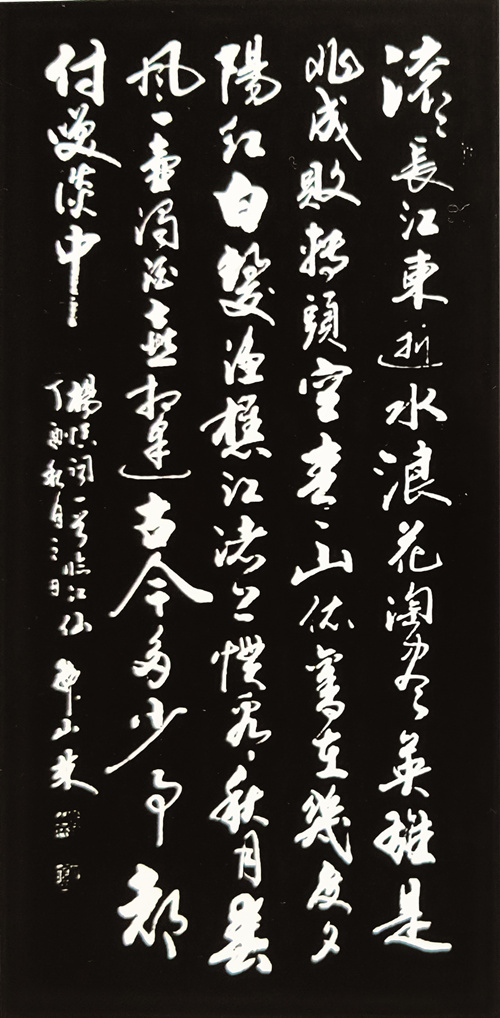 滚々長江東逝水浪花淘盡英雄是
非成敗轉頭空青山依舊在幾度夕
陽紅白髮漁樵江渚上慣看秋月春
風一壺濁酒喜相逢古今多少事都
付笑談中
楊慎詞一首臨江仙
丁酉秋月之日